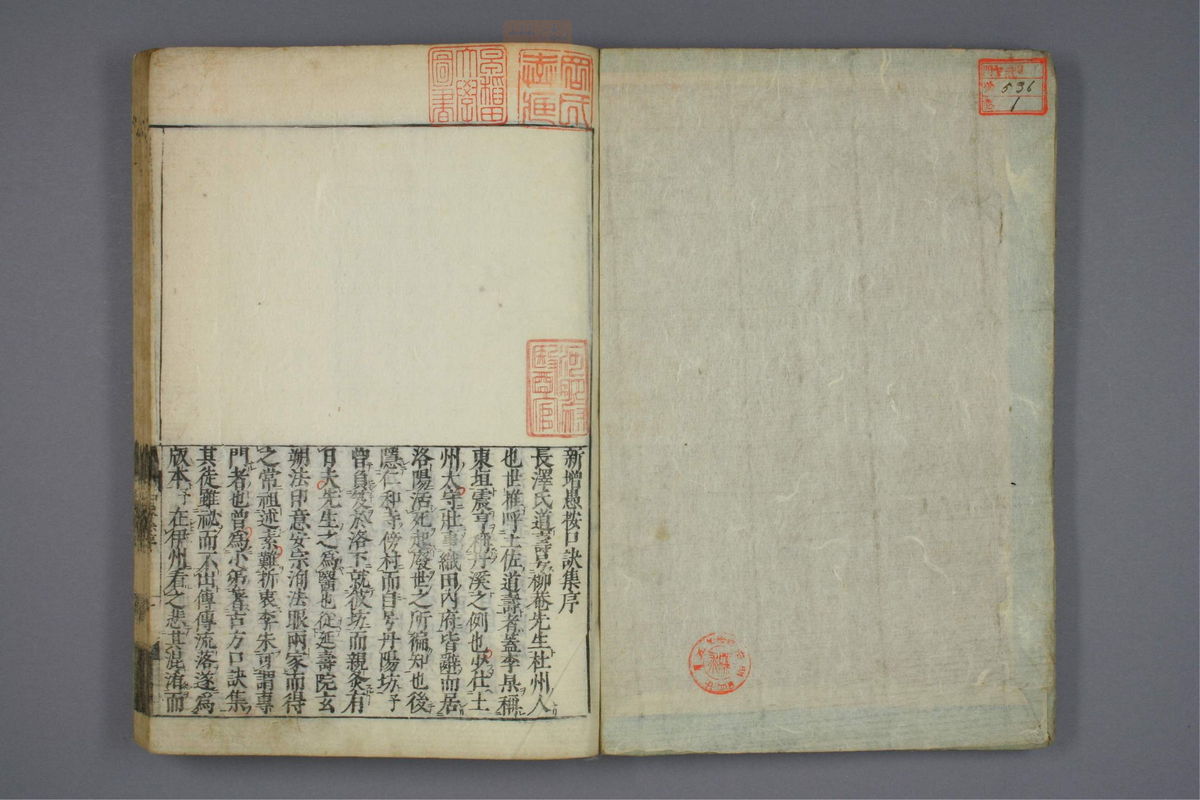 536
1
新增愚按口訣集序
長澤氏道壽号柳菴先生杜州人
也世推呼土佐道壽者蓋李杲稱
東垣震亨稱丹溪之例也少仕土
州太守壯事織田內府皆辭而居
洛陽活死起廢世之所徧知也後
隱仁和寺傍村而自号丹陽坊予
曾負笈於洛下就彼坊而親炙有
日夫先生之為醫也從延壽院玄
朔法印意安宗洵法眼兩家而得
之常祖述素難折衷李朱可謂專
門者也曾為小弟著古方口訣集
其徒雖祕而不出傳傳流落遂為
版本予在伊州看之悲其混淆而